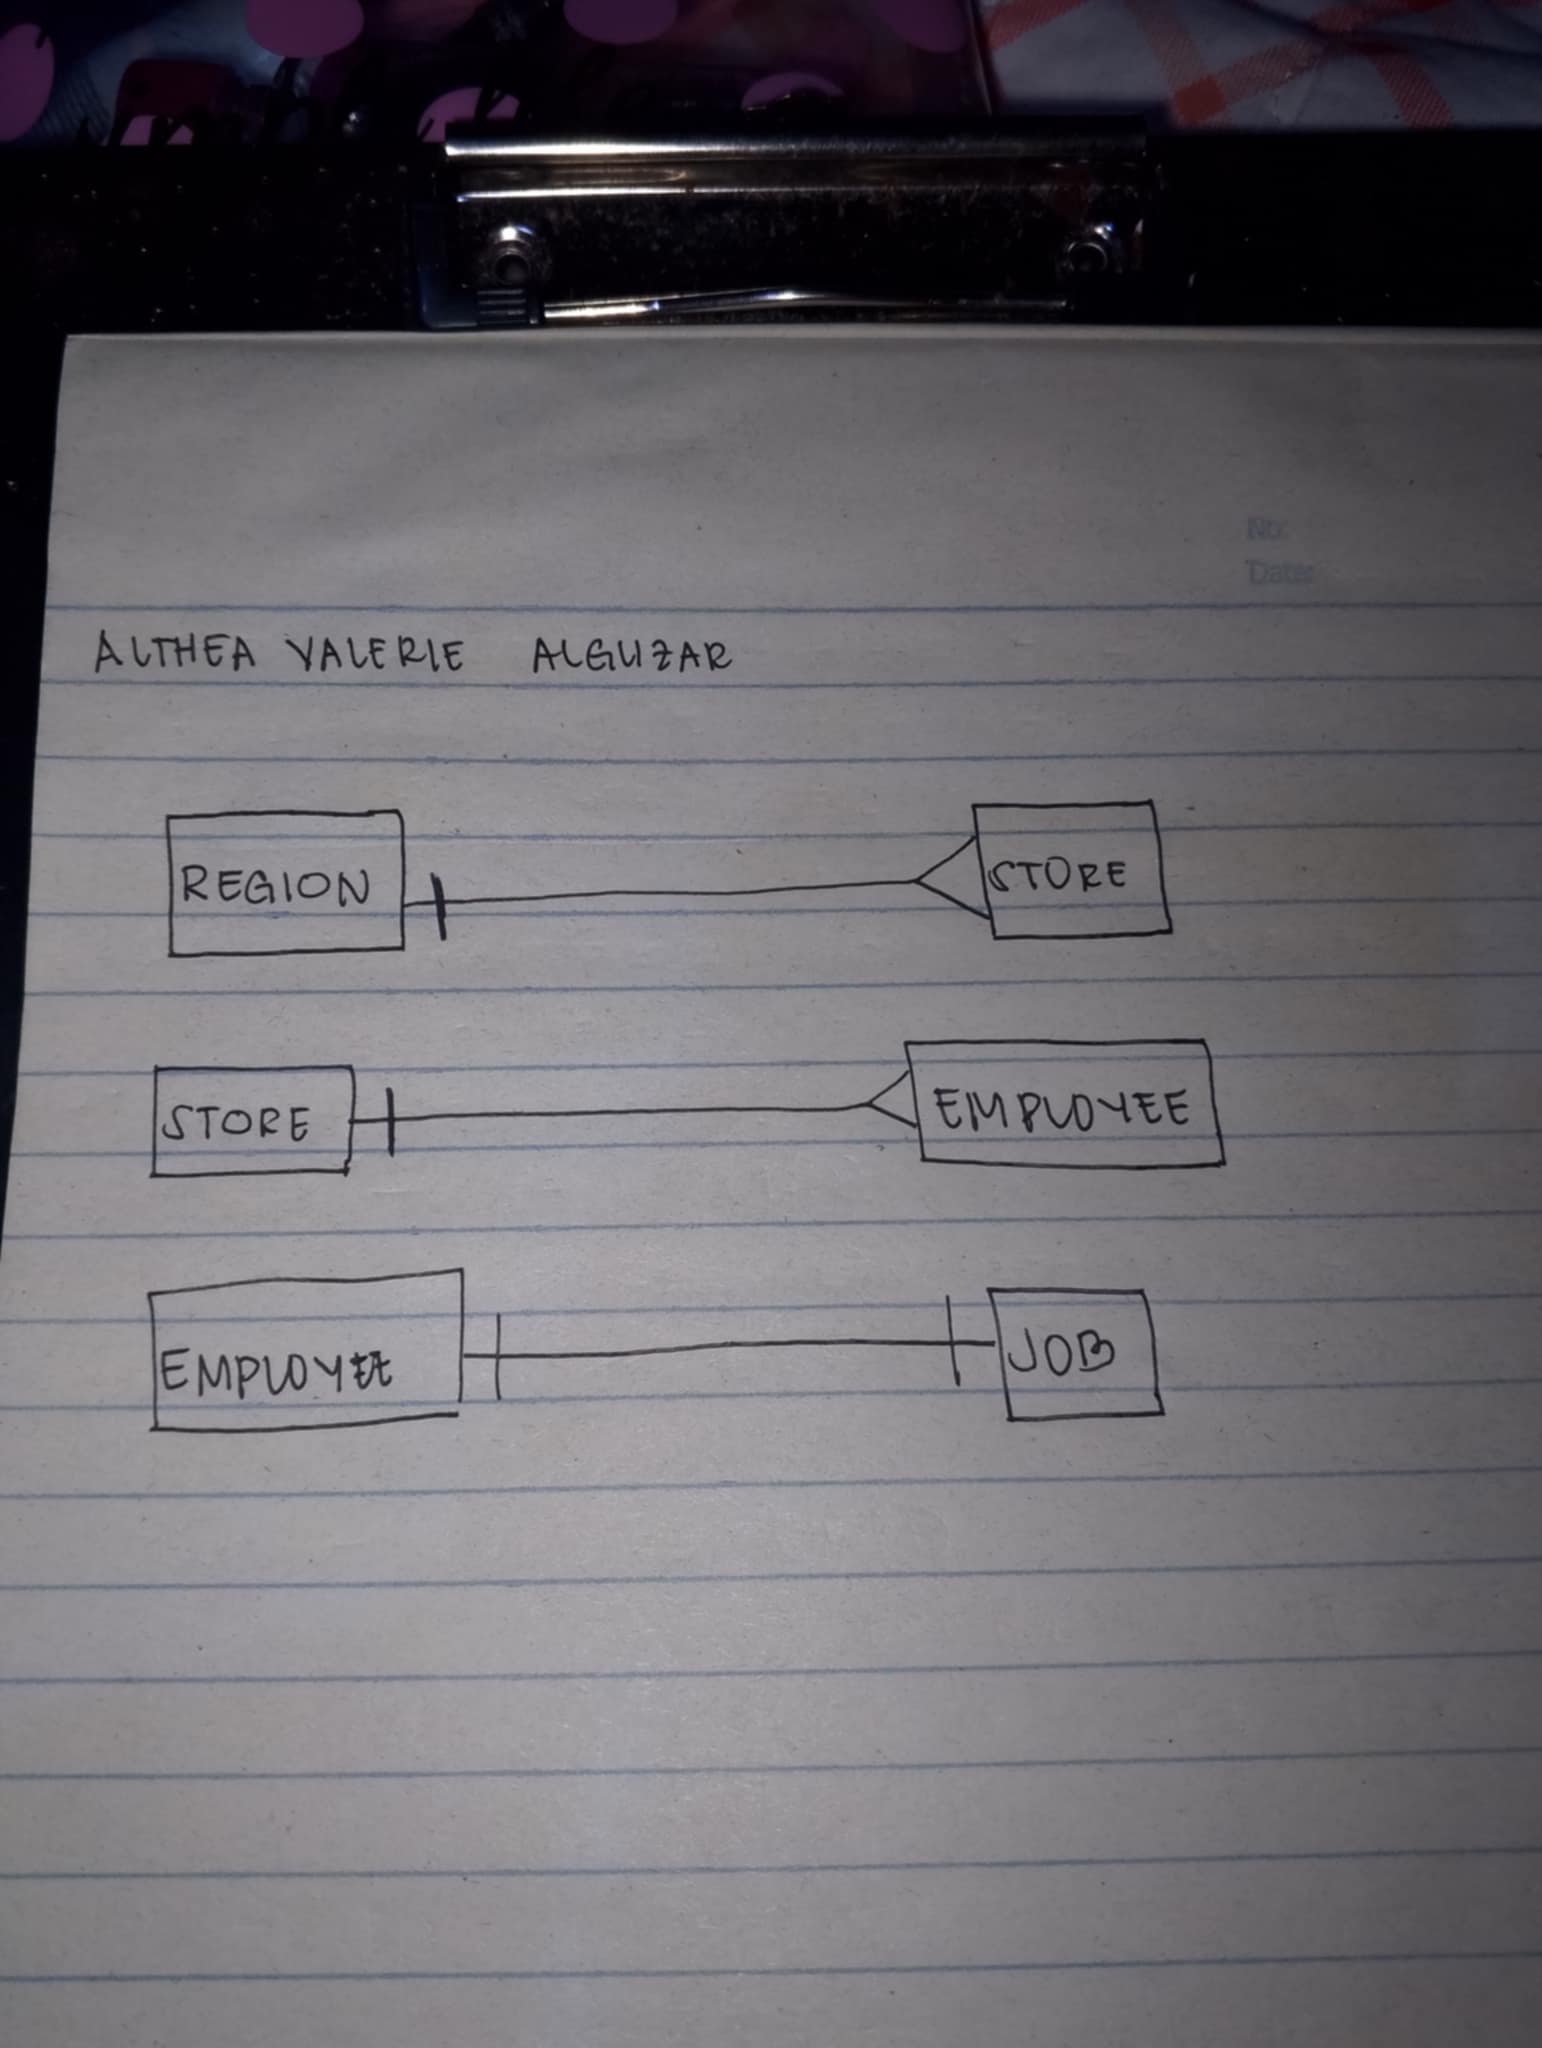 No.
Date:
ALTHEA VALERIE ALGUZAR
REGION STORE
STORE EMPLOYEE
EMPLOYEE JOB